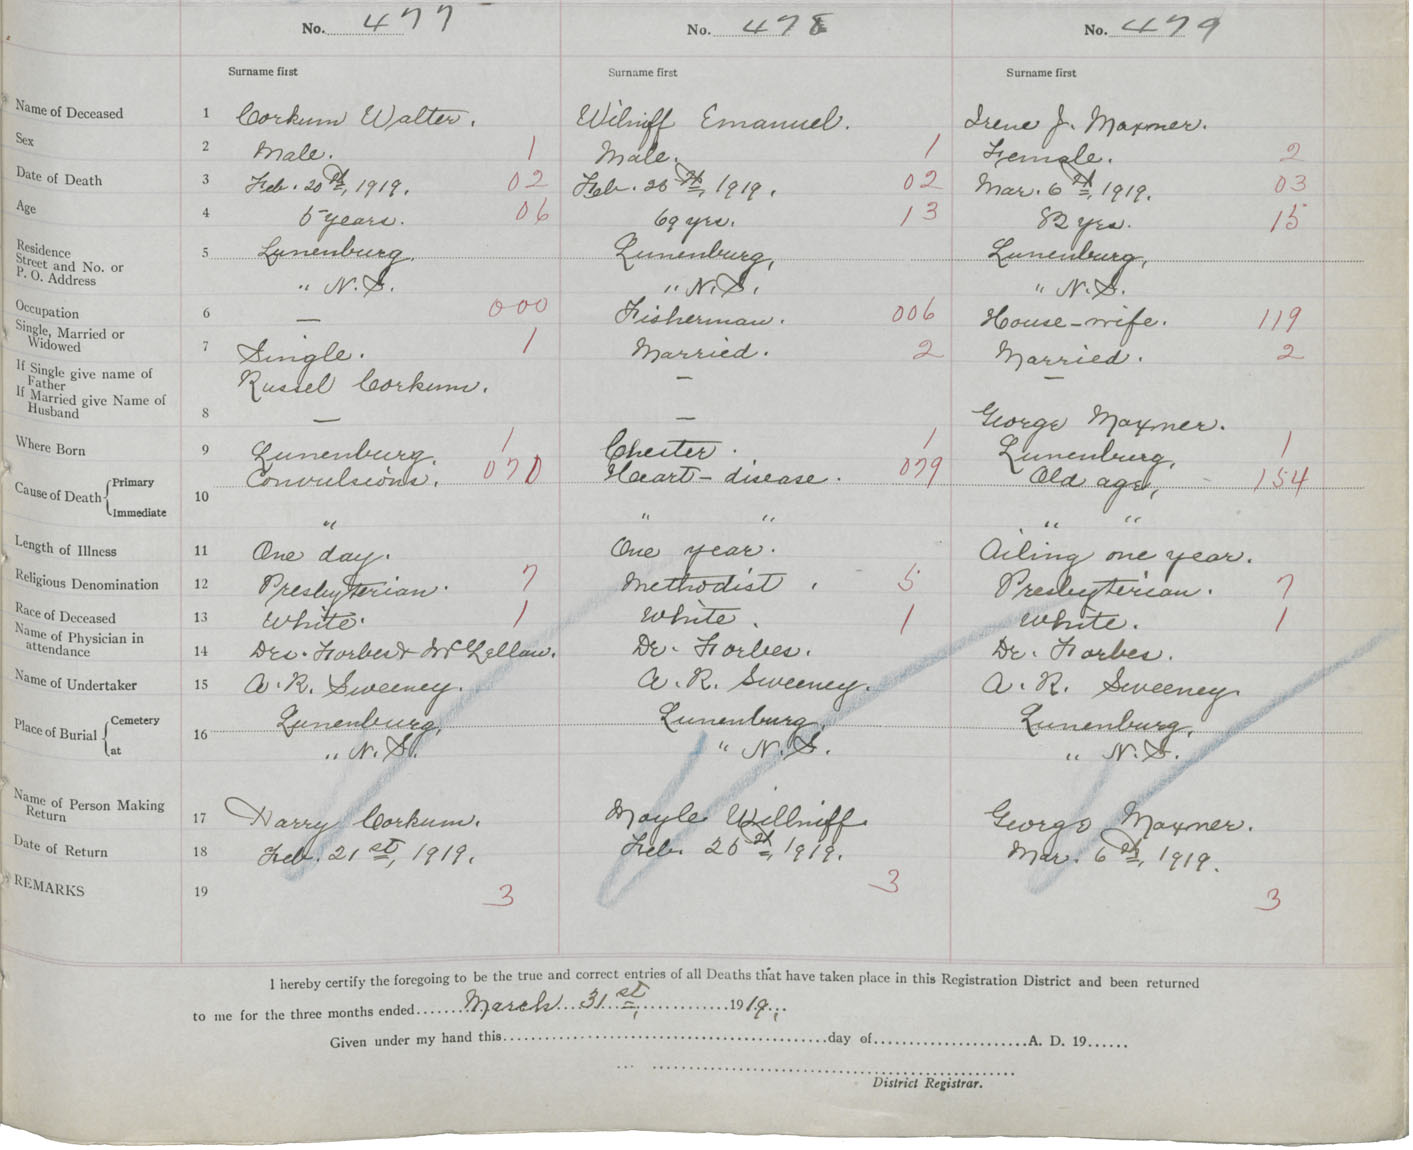 No. 477 No. 478 No. 479
Surname first Surname first Surname first
Name of Deceased 1 Corkum Walter. Wilniff Emanuel. Irene J. Maxner.
Sex 2 Male. 1 Male. 1 Female. 2
Date of Death 3 Feb. 20th, 1919. 02 Feb. 26th, 1919. 02 Mar. 6th, 1919. 03
Age 4 5 years. 06 69 yrs. 13 82 yrs. 15
Residence
Street and No. or 5 Lunenburg, Lunenburg, Lunenburg,
P. O. Address " N.S. " N.S. " N.S.
Occupation 6 — 000 Fisherman. 006 House-wife. 119
Single, Married or
Widowed 7 Single. 1 Married. 2 Married. 2
If Single give name of
Father Russel Corkum. — —
If Married give Name of
Husband 8 — — George Maxner.
Where Born 9 Lunenburg. 1 Chester. 1 Lunenburg, 1
Cause of Death Primary Convulsions. 070 Heart-disease. 079 Old age, 154
10
Immediate " " " " "
Length of Illness 11 One day. One year. Ailing one year.
Religious Denomination 12 Presbyterian. 7 Methodist. 5 Presbyterian. 7
Race of Deceased 13 White. 1 White. 1 White. 1
Name of Physician in
attendance 14 Drs. Forbes & McLellan. Dr. Forbes. Dr. Forbes.
Name of Undertaker 15 A. R. Sweeney. A. R. Sweeney. A. R. Sweeney.
Place of Burial Cemetery 16 Lunenburg, Lunenburg, Lunenburg,
at " N.S. " N.S. " N.S.
Name of Person Making
Return 17 Harry Corkum. Moyle Willniff. George Maxner.
Date of Return 18 Feb. 21st, 1919. Feb. 26th, 1919. Mar. 6th, 1919.
REMARKS 19 3 3 3
I hereby certify the foregoing to be the true and correct entries of all Deaths that have taken place in this Registration District and been returned
to me for the three months ended March 31st, 1919,
Given under my hand this day of A. D. 19
District Registrar.